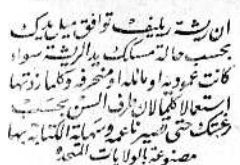 ان ريشة ريليف توافق ميل يدك
بحسب حالة مسكك يد الريشة سواء
كانت عموديه او مائله او منحرفه وكلما زدتها
استعمالا كلما لان طرف السن بحسب
رغبتك حتى تصير ناعمه وسهلة الكتابة بها
مصنوعة بالولايات المتحده